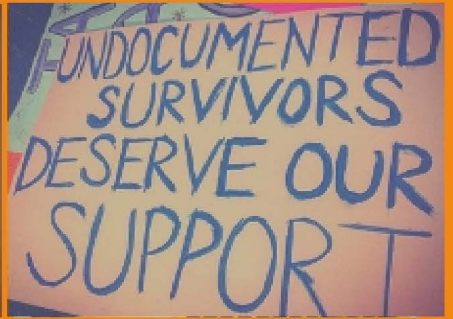 UNDOCUMENTED
SURVIVORS
DESERVE OUR
SUPPORT